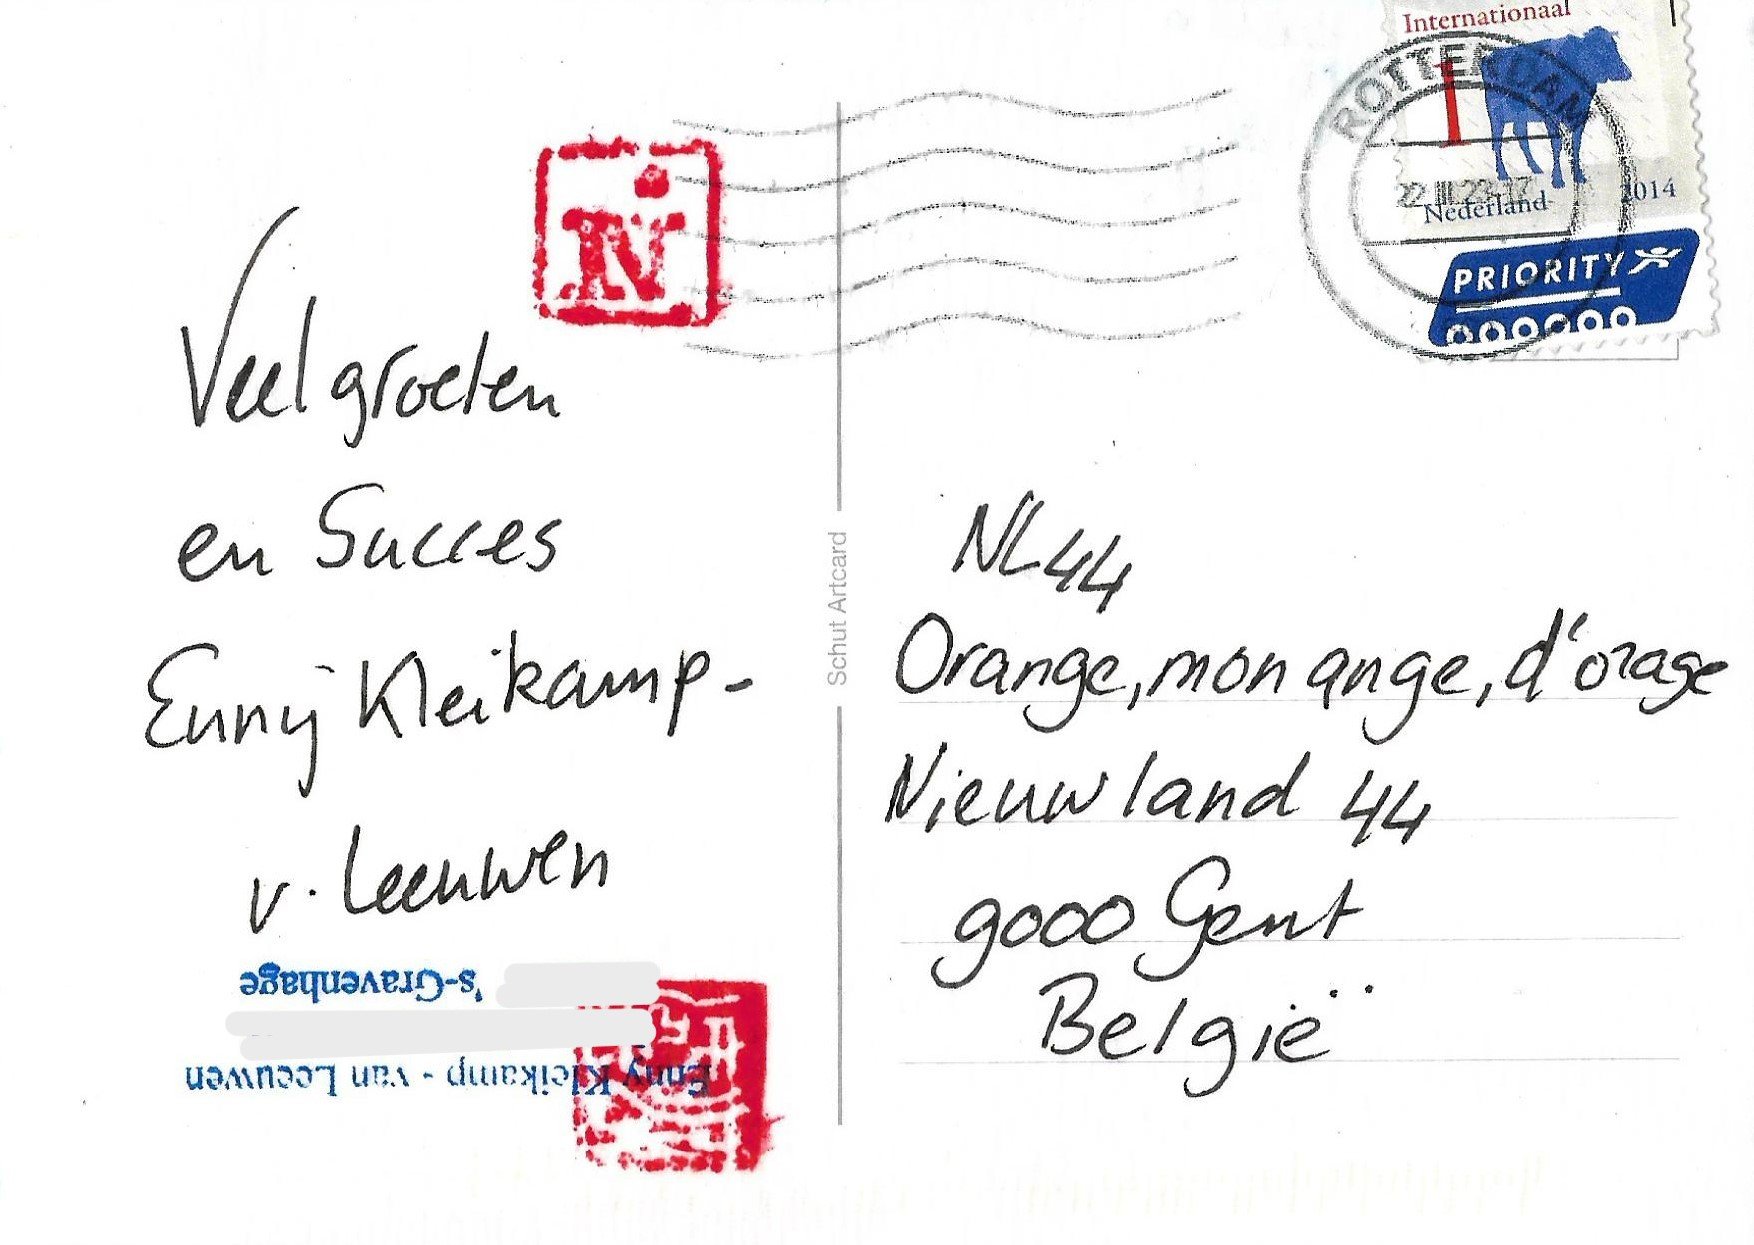 Internationaal
1
ROTTERDAM
Nederland 2014
PRIORITY
N
Veel groeten
en Succes
Enny Kleikamp-
v. Leeuwen
's-Gravenhage
Enny Kleikamp - van Leeuwen
Schut Artcard
NL44
Orange, mon ange, d'orage
Nieuwland 44
9000 Gent
België